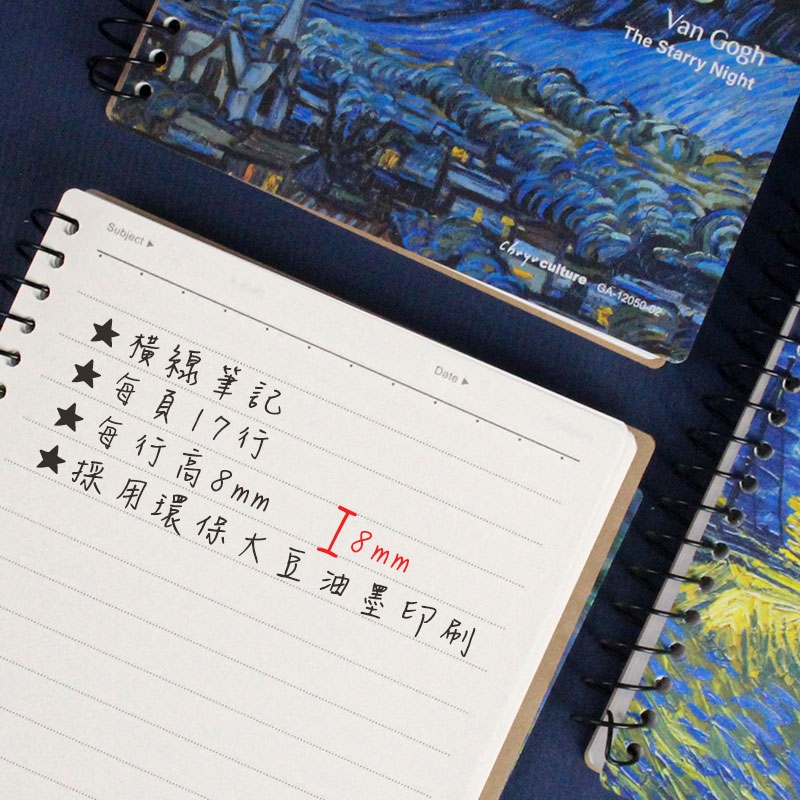 Van Gogh
The Starry Night
chrysculture GA-12050-02
Subject ▶
Date ▶
★橫線筆記
★每頁17行
★每行高8mm
8mm
★採用環保大豆油墨印刷